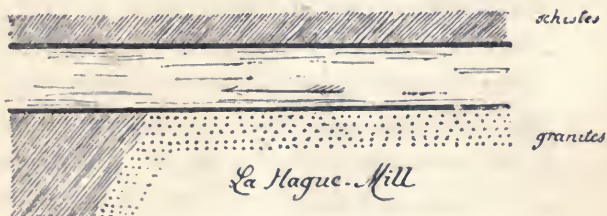 schistes
granites
La Hague-Mill